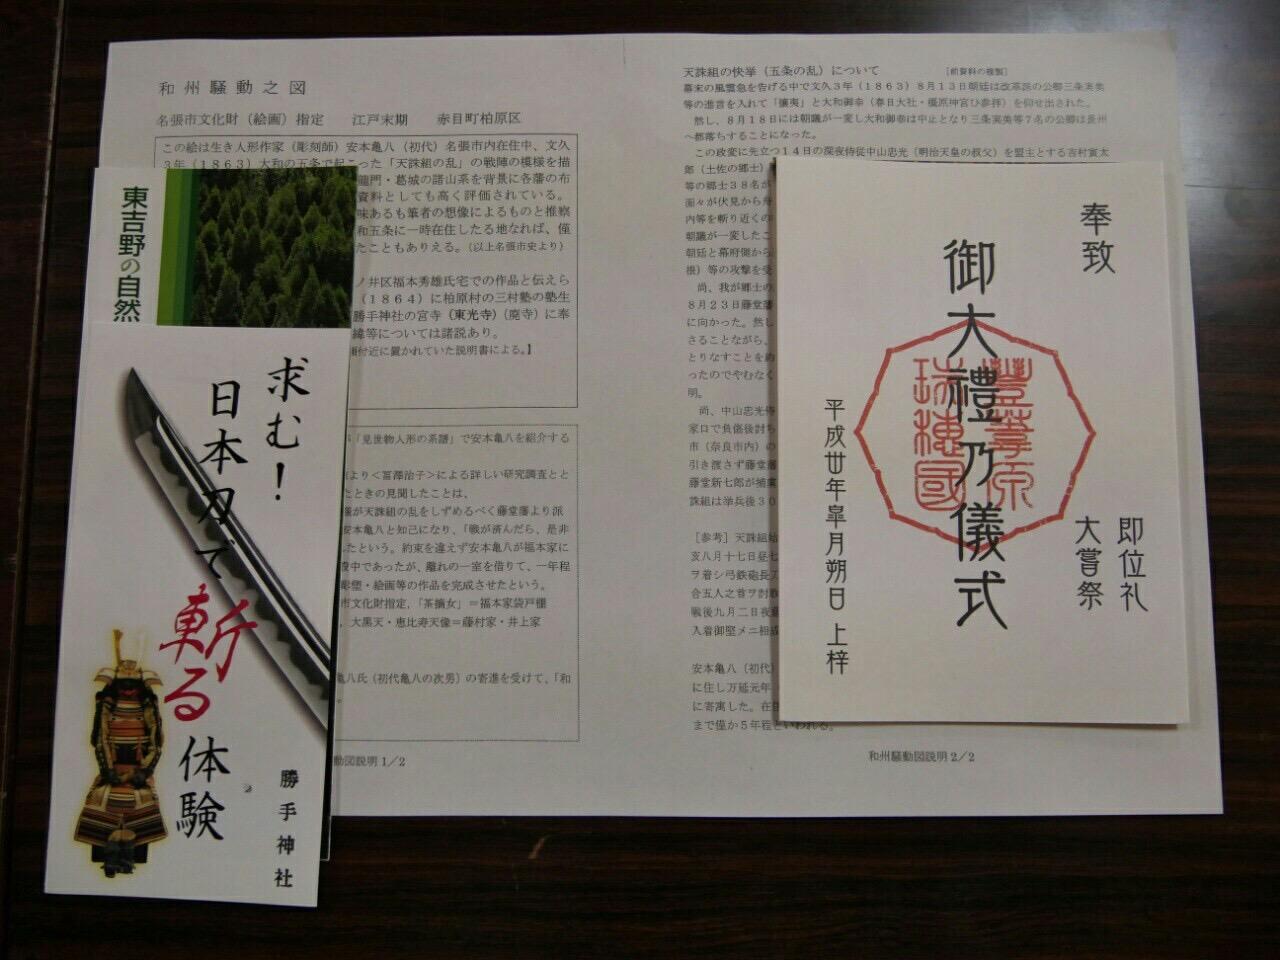 和州騒動之図
名張市文化財（絵画）指定　江戸末期　赤目町柏原区
この絵は生き人形作家（彫刻師）安本亀八（初代）名張市内在住中、文久
3年（１８６３）大和の五条で起こった「天誅組の乱」の戦陣の模様を描
龍門・葛城の諸山系を背景に各藩の布
資料としても高く評価されている。
味あるも筆者の想像によるものと推察
和五条に一時在住したる地なれば、僅
たこともありえる。（以上名張市史より）
ノ井区福本秀雄氏宅での作品と伝えら
（１８６４）に柏原村の三村塾の塾生
勝手神社の宮寺（東光寺）（廃寺）に奉
緯等については諸説あり。
付近に置かれていた説明書による。】
「見世物人形の系譜」で安本亀八を紹介する
より＜冨澤治子＞による詳しい研究調査とと
たときの見聞したことは、
が天誅組の乱をしずめるべく藤堂藩より派
安本亀八と知己になり、「戦が済んだら、是非
たという。約束を違えず安本亀八が福本家に
中であったが、離れの一室を借りて、一年程
彫塑・絵画等の作品を完成させたという。
市文化財指定、「茶摘女」＝福本家袋戸棚
、大黒天・恵比寿天像＝藤村家・井上家
亀八氏（初代亀八の次男）の寄進を受けて、「和
動図説明１／２
天誅組の快挙（五条の乱）について　［前資料の複製］
幕末の風雲急を告げる中で文久３年（１８６３）８月１３日朝廷は改革派の公卿三条実美
等の進言を入れて「攘夷」と大和御幸（春日大社・橿原神宮ひ参拝）を仰せ出された。
然し、８月１８日には朝議が一変し大和御幸は中止となり三条実美等７名の公卿は長州
へ都落ちすることになった。
この政変に先立つ１４日の深夜侍従中山忠光（明治天皇の叔父）を盟主とする吉村寅太
郎（土佐の郷士）
等の郷士３８名が
面々が伏見から舟
内等を斬り近くの
朝議が一変したこ
朝廷と幕府側から
根）等の攻撃を受
尚、我が郷土の
８月２３日藤堂藩
に向かった。然し
さることながら、
とりなすことを約
ったのでやむなく
明。
尚、中山忠光侍
家口で負傷後討ち
市（奈良市内）の
引き渡さず藤堂藩
藤堂新七郎が捕縛
誅組は挙兵後３０
［参考］天誅組始
亥八月十七日昼七
ヲ着シ弓鉄砲長刀
合五人之首ヲ討取
戦後九月二日夜
入着御堅メニ相成
安本亀八（初代）
に住し万延元年
に寄寓した。在住
まで僅か５年程といわれる。
和州騒動図説明２／２
東吉野の自然
求む！
日本刀で
斬る
体験
勝手神社
奉致
御大禮乃儀式
即位礼
大嘗祭
平成丗年皐月朔日　上梓
豊葦原
瑞穂國